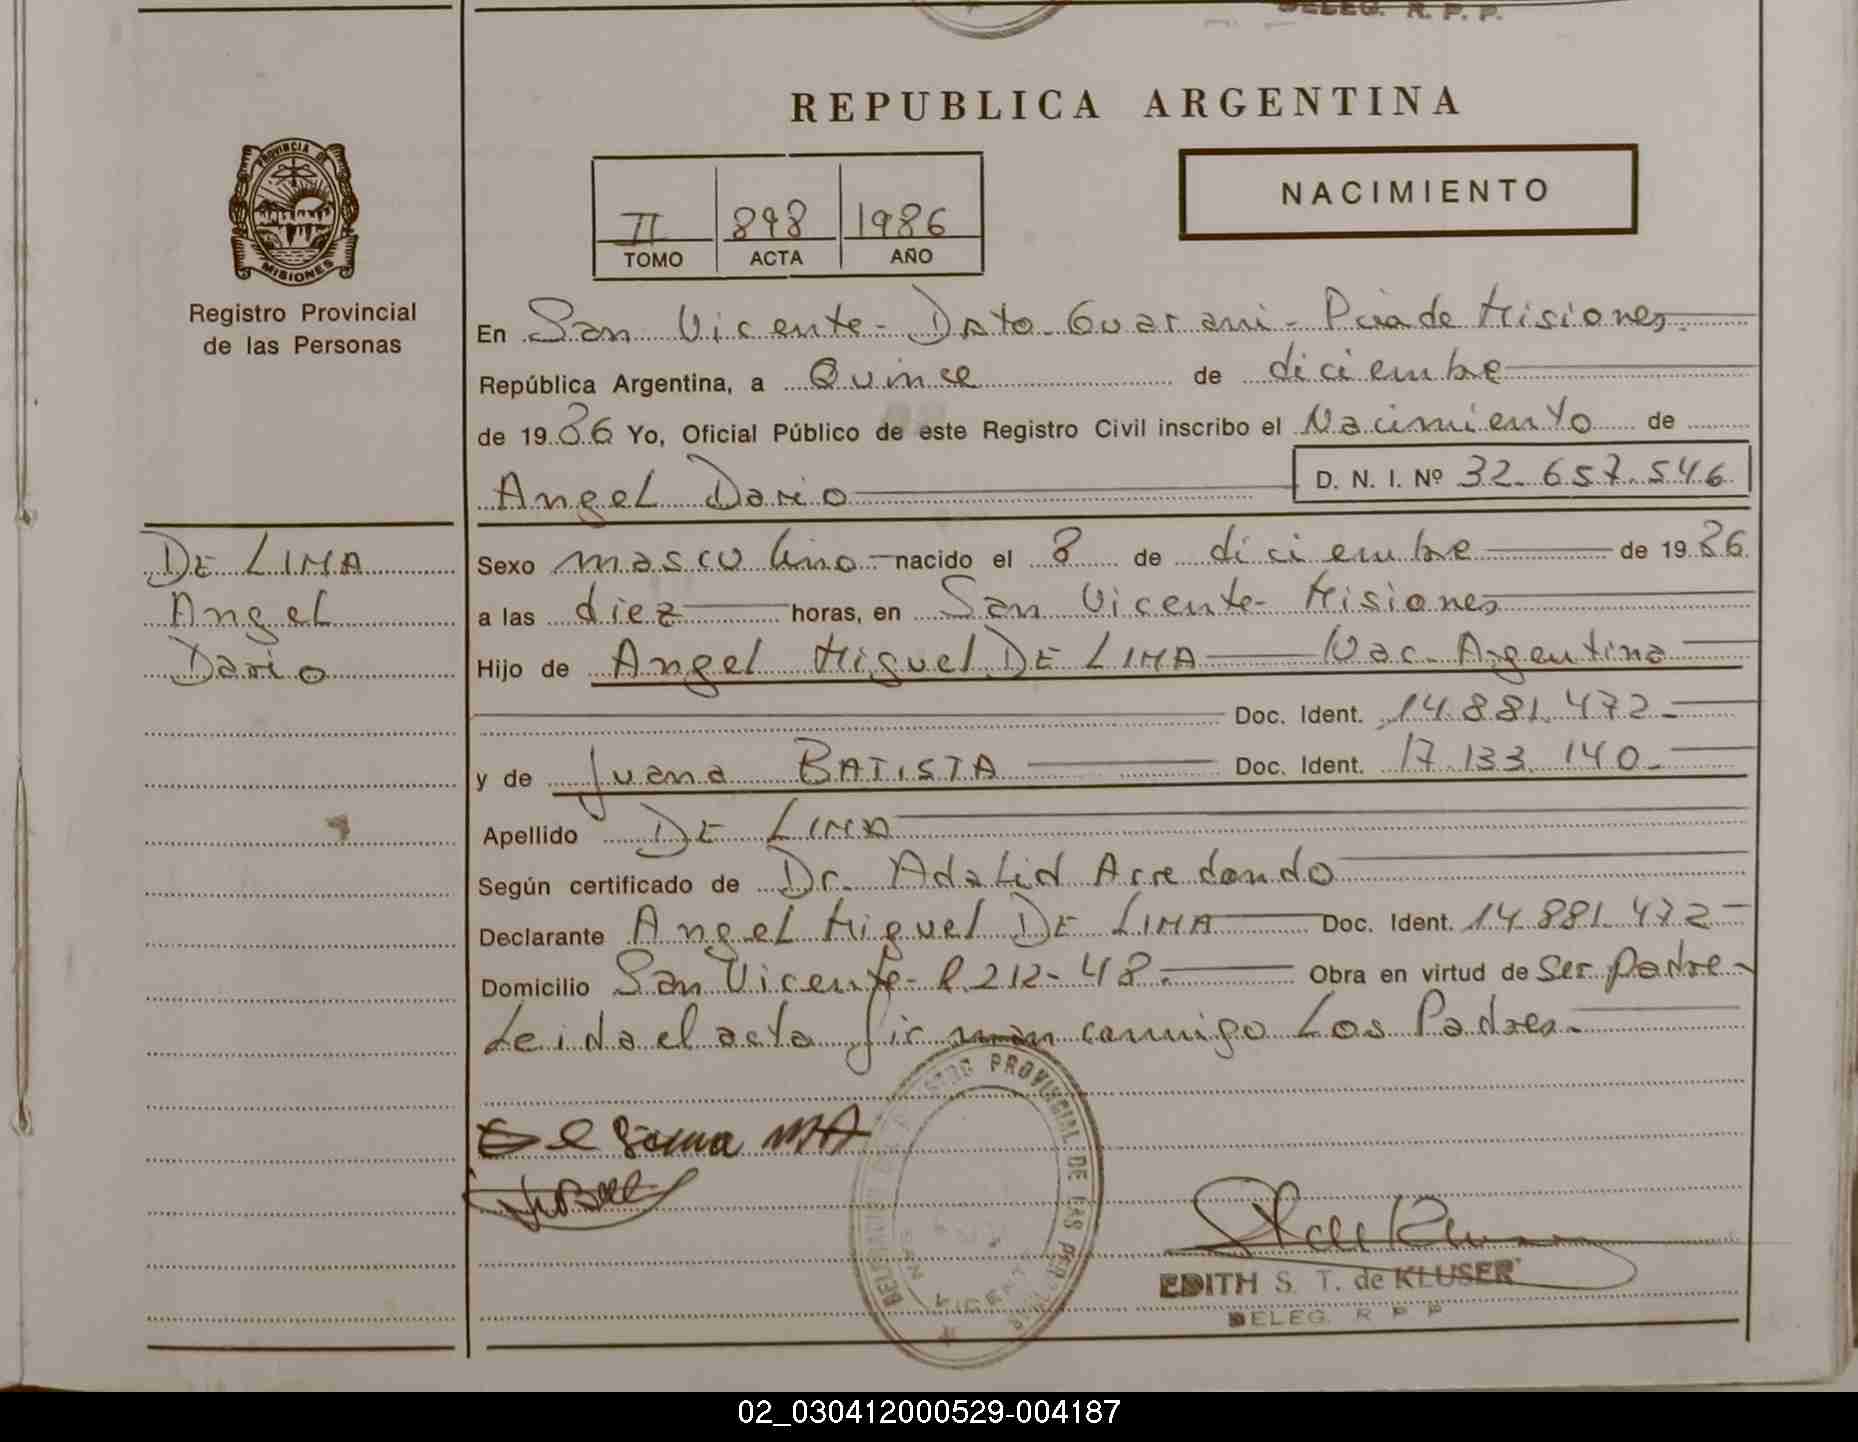 DELEG. R. P. P.
REPUBLICA ARGENTINA
NACIMIENTO
II 898 1986
TOMO ACTA AÑO
PROVINCIA DE
MISIONES
Registro Provincial
de las Personas
En San Vicente - Dpto Guarani - Pcia de Misiones.
República Argentina, a Quince de diciembre
de 1986 Yo, Oficial Público de este Registro Civil inscribo el Nacimiento de
Angel Dario D. N. I. Nº 32.657.546
DE LIMA
Angel
Dario
Sexo masculino nacido el 8 de diciembre de 1986
a las diez horas, en San Vicente - Misiones
Hijo de Angel Miguel DE LIMA Nac. Argentina
Doc. Ident. 14.881.472
y de Juana BATISTA Doc. Ident. 17.133.140
Apellido DE LIMA
Según certificado de Dr. Adalid Arredondo
Declarante Angel Miguel DE LIMA Doc. Ident. 14.881.472
Domicilio San Vicente - L.212-48. Obra en virtud de ser padre
Leida el acta firman conmigo Los Padres.
REGISTRO PROVINCIAL DE LAS
SAN VICENTE
EDITH S. T. de KLUSER
DELEG. R P P
02_030412000529-004187